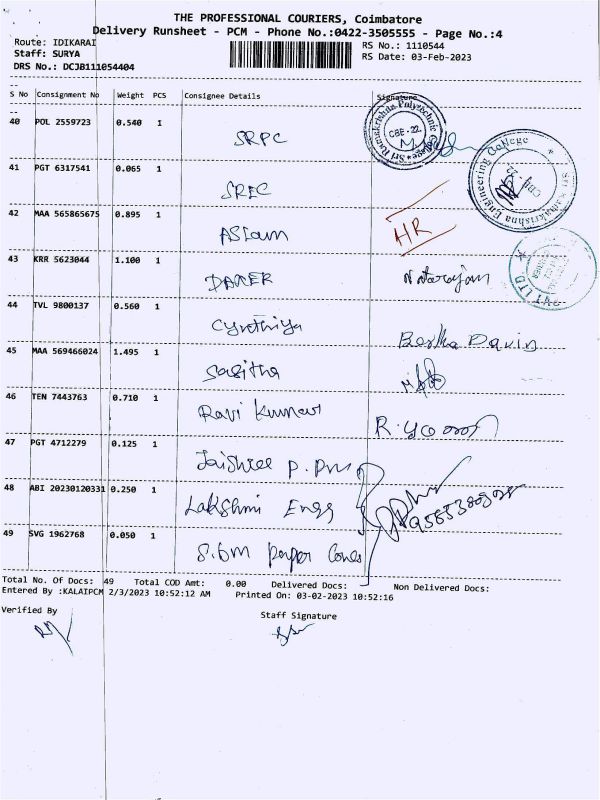 THE PROFESSIONAL COURIERS, Coimbatore
Delivery Runsheet - PCM - Phone No.:0422-3505555 - Page No.:4
Route: IDIKARAI
RS No.: 1110544
Staff: SURYA
RS Date: 03-Feb-2023
DRS No.: DCJB111054404
S No Consignment No Weight PCS Consignee Details Signature
40 POL 2559723 0.540 1
SRPC
Sri Ramakrishna Polytechnic College
CBE-22
41 PGT 6317541 0.065 1
SREC
Engineering College
42 MAA 565865675 0.895 1
ASlam
HR
43 KRR 5623044 1.100 1
Natarajan
PVT LTD
44 TVL 9800137 0.560 1
Cynthiya
45 MAA 569466024 1.495 1
Sasitha
46 TEN 7443763 0.710 1
Ravi Kumar
47 PGT 4712279 0.125 1
Jaishree P.
48 ABI 20230120331 0.250 1
Lakshmi Engg
49 SVG 1962768 0.050 1
S.bm paper Cones
Total No. Of Docs: 49 Total COD Amt: 0.00 Delivered Docs: Non Delivered Docs:
Entered By :KALAIPCM 2/3/2023 10:52:12 AM Printed On: 03-02-2023 10:52:16
Verified By
Staff Signature